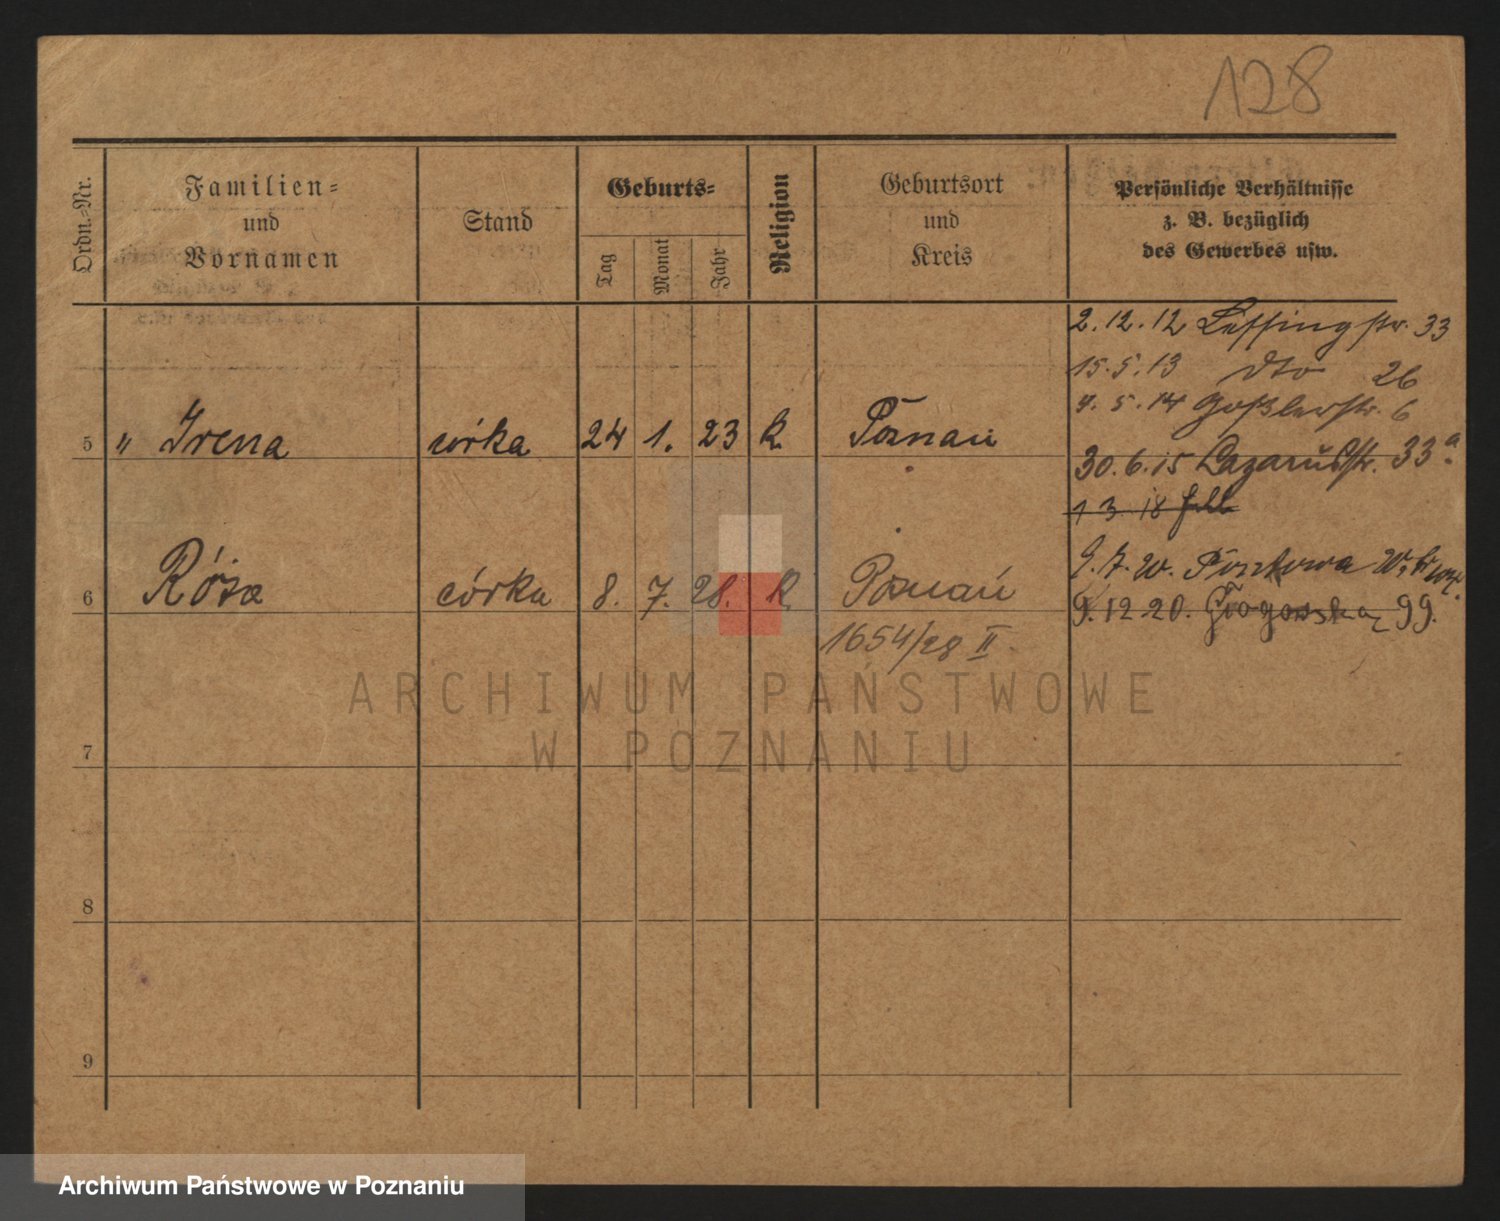 128
Ordn.-Nr.
Familien-
und
Vornamen
Stand
Geburts-
Tag
Monat
Jahr
Religion
Geburtsort
und
Kreis
Persönliche Verhältnisse
z. B. bezüglich
des Gewerbes usw.
2.12.12 Lessingstr. 33
15.5.13 dto 26
4.5.14 Goßlerstr. 6
5 " Irena córka 24 1. 23 K Poznań
30.6.15 Lazarusstr. 33a
1 3 18
6 Róża córka 8. 7. 28. K Poznań
9.12.20. Głogowska 99.
1654/28 II.
ARCHIWUM PAŃSTWOWE
W POZNANIU
7
8
9
Archiwum Państwowe w Poznaniu